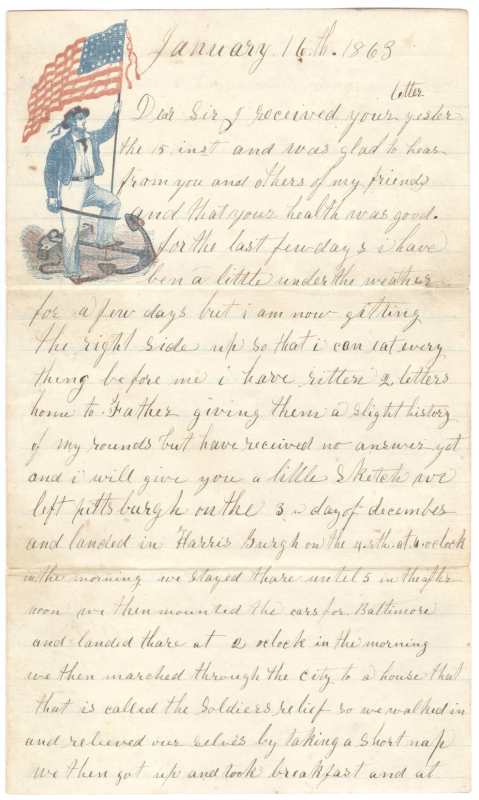 January 16.th. 1863
letter
Dear Sir I received your yester
the 15 inst and was glad to hear
from you and others of my friends
and that your health was good.
for the last few days i have
ben a little under the weather
for a few days but i am now getting
the right side up so that i can eat every
thing before me i have ritten 2 letters
home to Father giving them a slight history
of my rounds but have received no answer yet
and i will give you a little sketch we
left pittsburgh on the 3 day of december
and landed in Harris Burgh on the at 4. oclock
in the morning we stayed thare until 5 in the after
noon we then mounted the cars for Baltimore
and landed thare at 2 oclock in the morning
we then marched through the city to a house that
that is called the Soldiers relief so we walked in
and relieved our selves by taking a short nap
we then got up and took breakfast and at